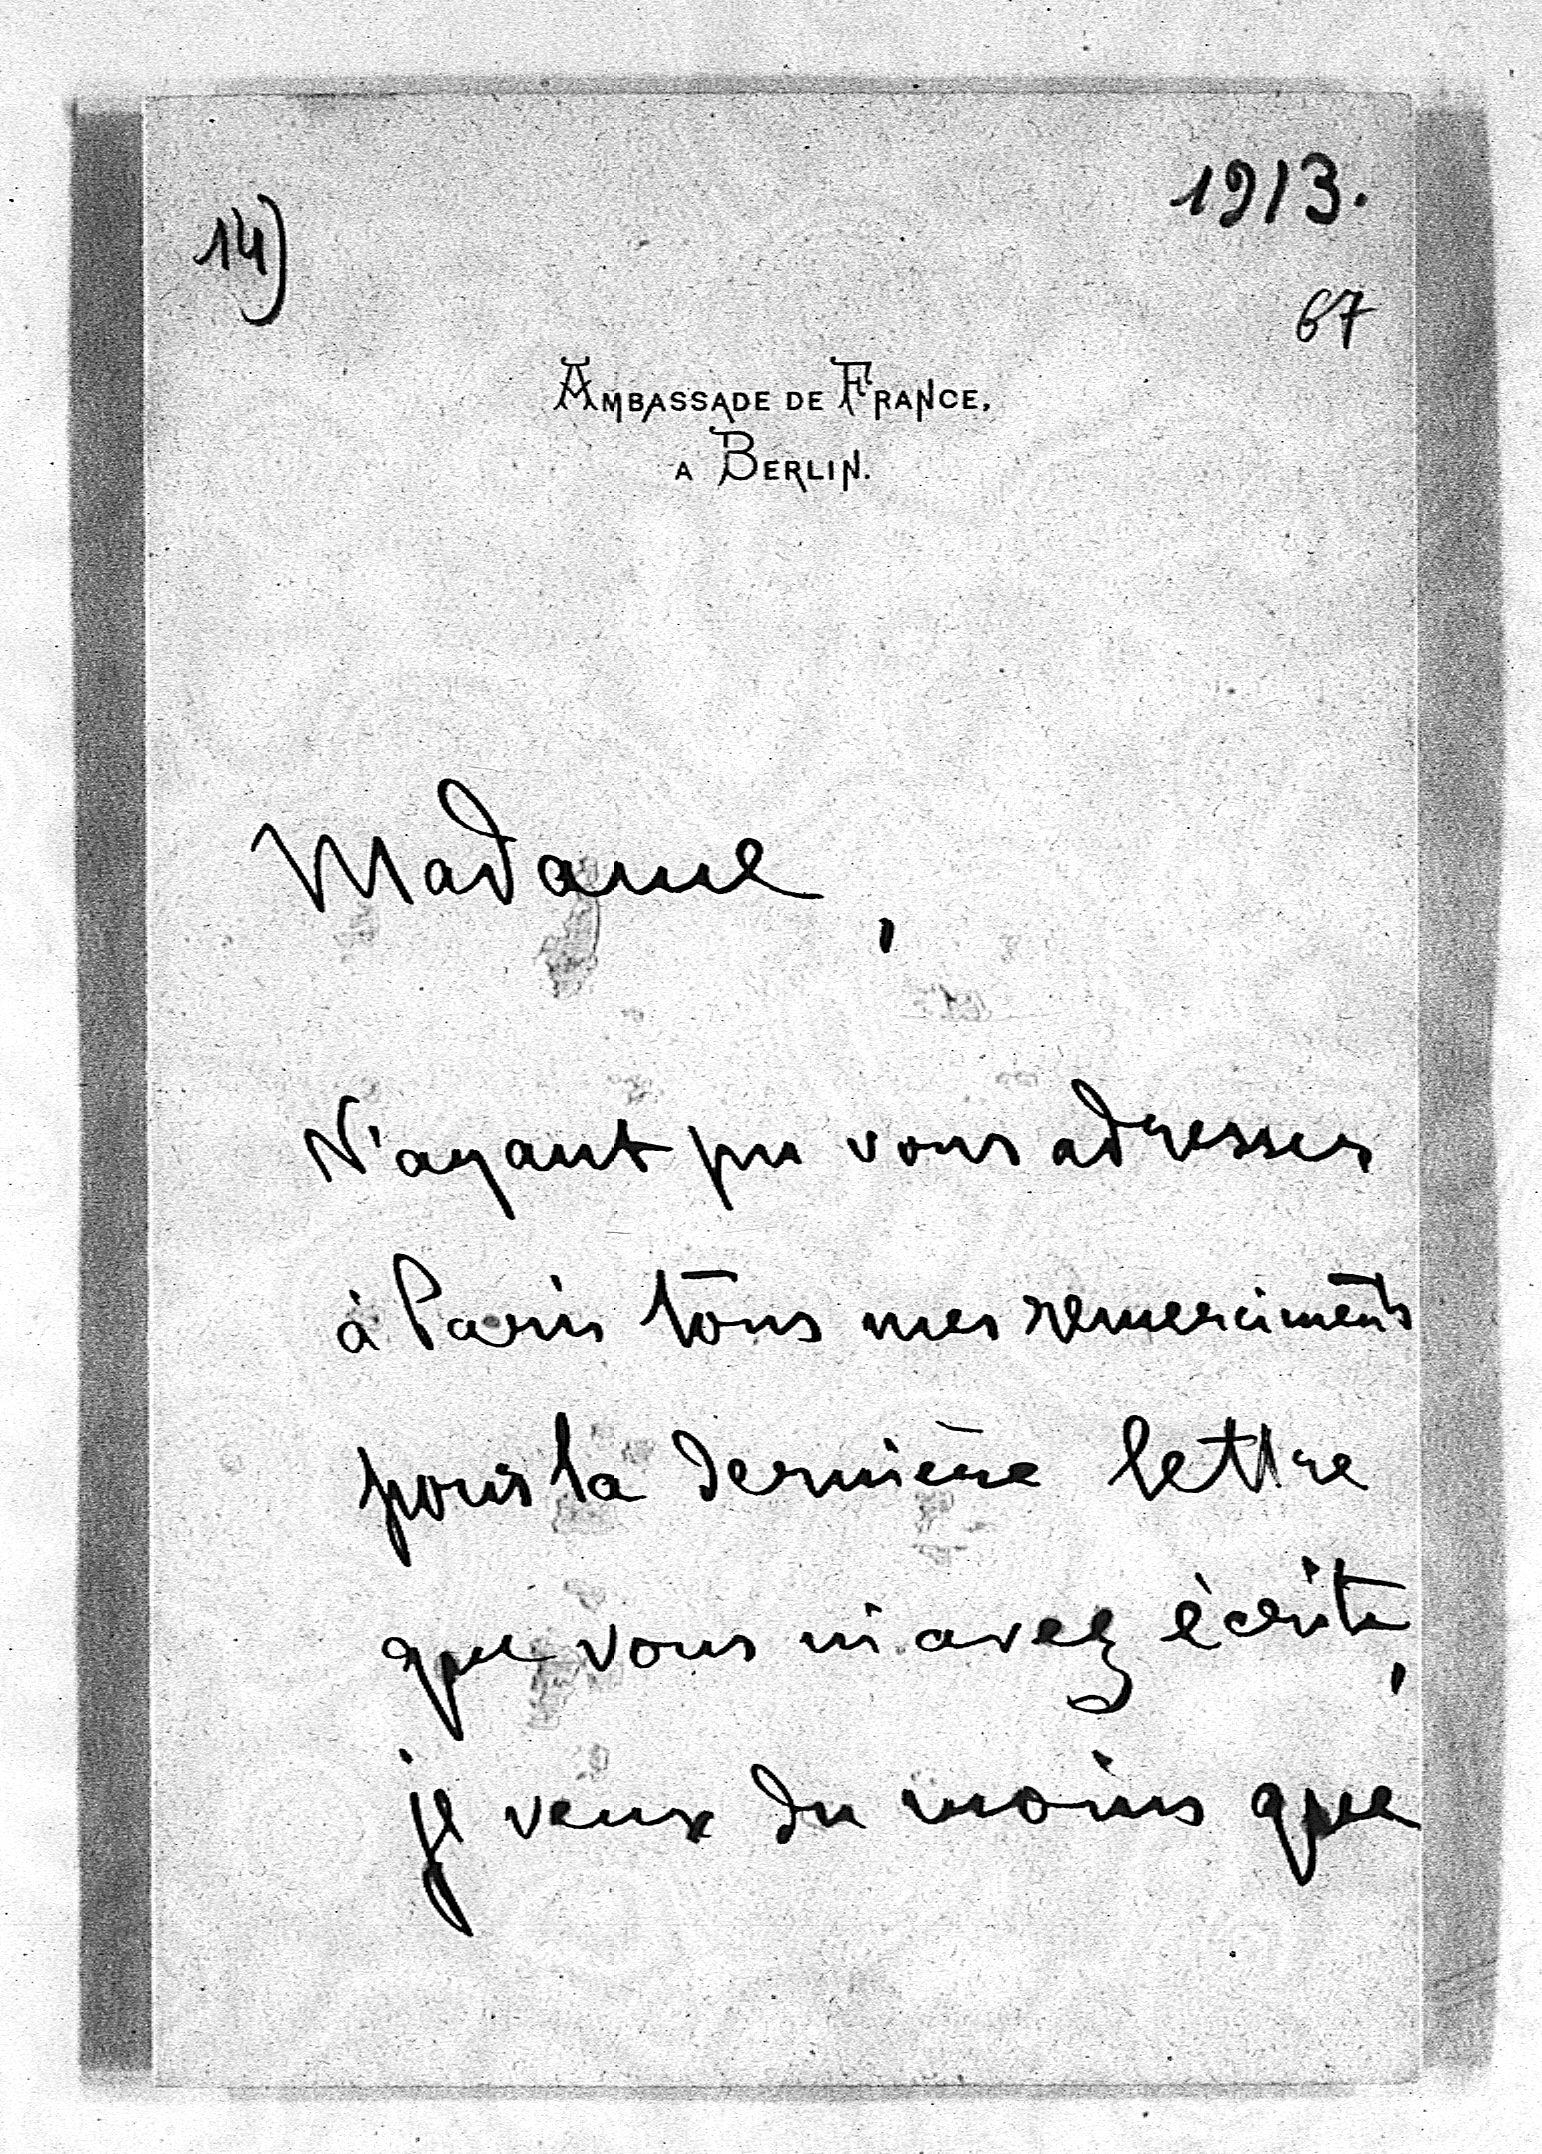 14)
1913.
67
AMBASSADE DE FRANCE,
A BERLIN.
Madame,
N'ayant pu vous adresser
à Paris tous mes remerciments
pour la dernière lettre
que vous m'avez écrite,
je veux du moins que